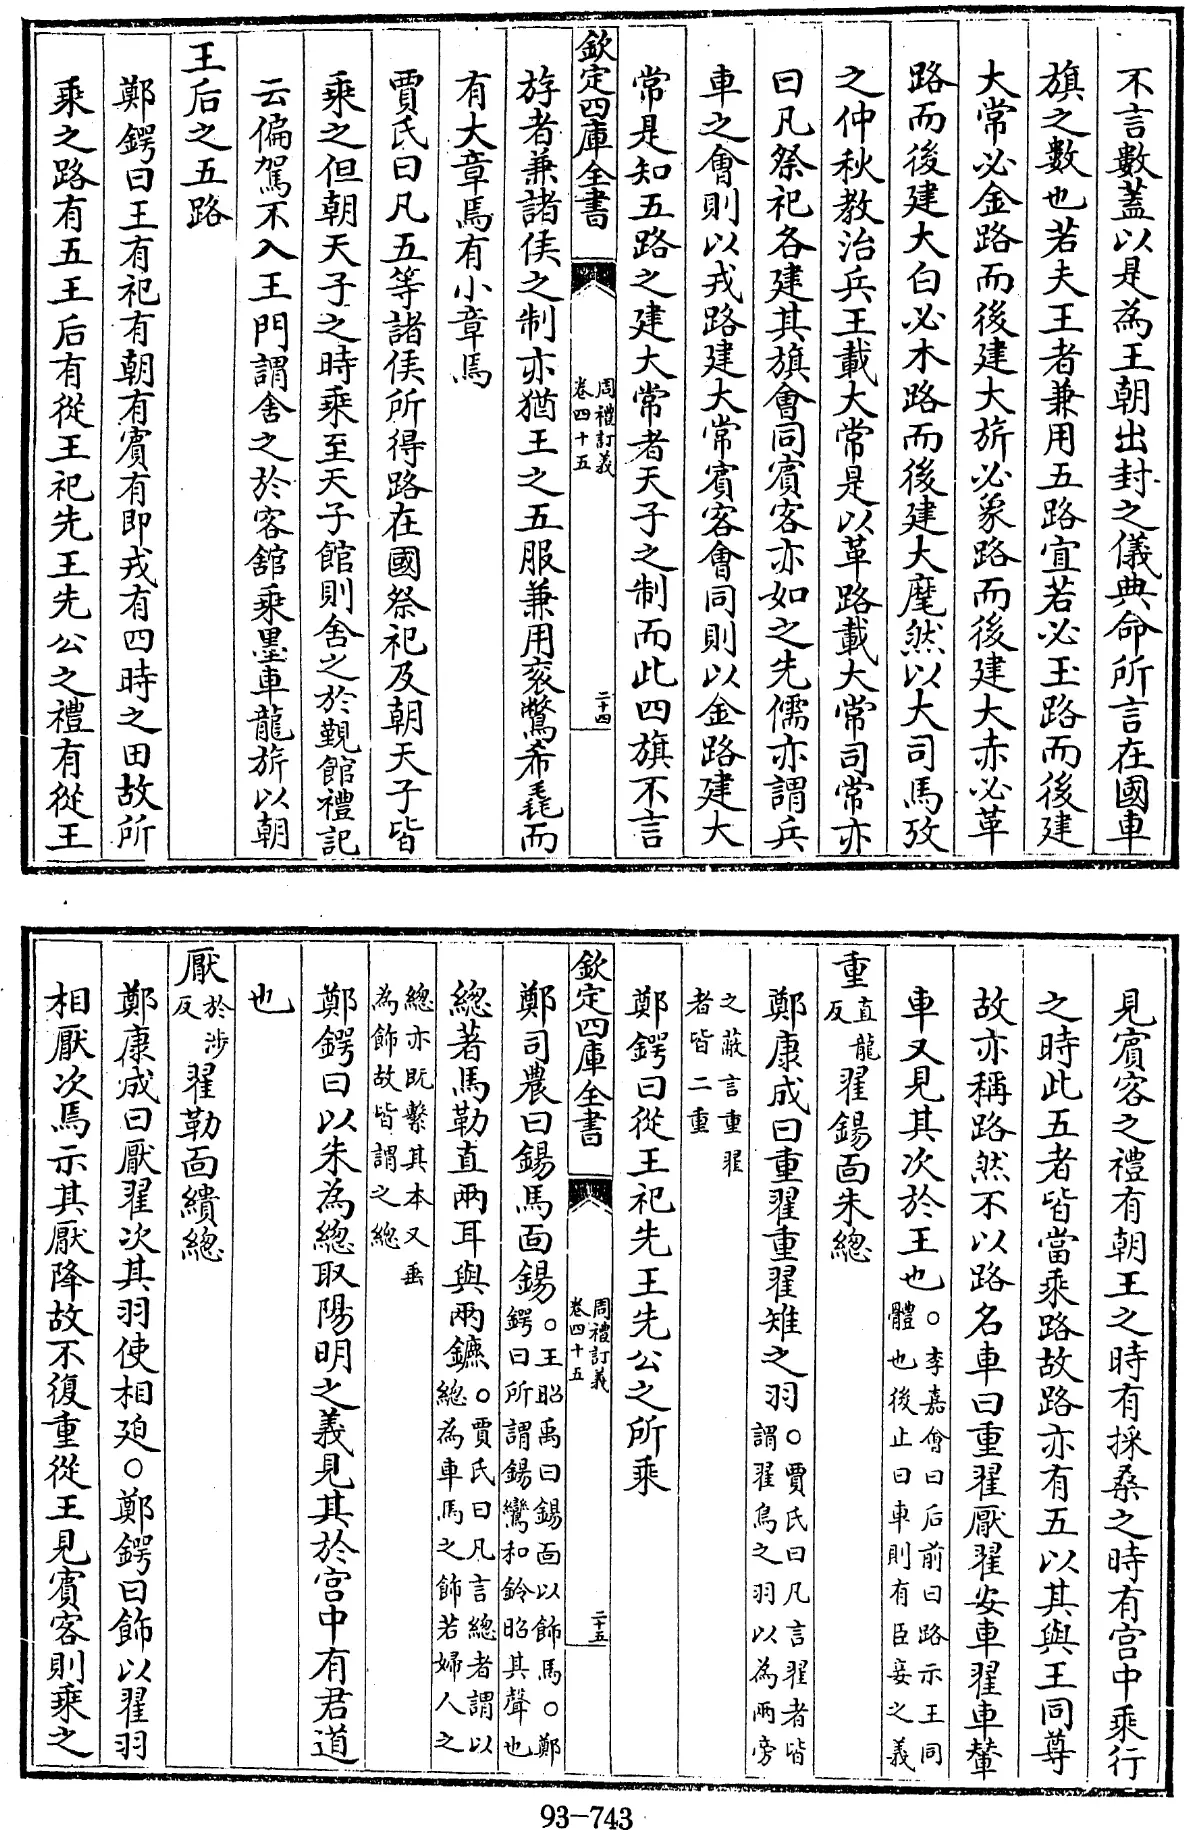 不言數蓋以是為王朝出封之儀典命所言在國車
旗之數也若夫王者兼用五路宜若必玉路而後建
大常必金路而後建大旂必象路而後建大赤必革
路而後建大白必木路而後建大麾然以大司馬攷
之仲秋教治兵王載大常是以革路載大常司常亦
曰凡祭祀各建其旗會同賓客亦如之先儒亦謂兵
車之會則以戎路建大常賓客會同則以金路建大
常是知五路之建大常者天子之制而此四旗不言
欽定四庫全書
周禮訂義
卷四十五
二十四
斿者兼諸侯之制亦猶王之五服兼用衮鷩希毳而
有大章焉有小章焉
賈氏曰凡五等諸侯所得路在國祭祀及朝天子皆
乘之但朝天子之時乘至天子館則舍之於覲館禮記
云偏駕不入王門謂舍之於客舘乘墨車龍旂以朝
王后之五路
鄭鍔曰王有祀有朝有賓有即戎有四時之田故所
乘之路有五王后有從王祀先王先公之禮有從王
見賓客之禮有朝王之時有採桑之時有宫中乘行
之時此五者皆當乘路故路亦有五以其與王同尊
故亦稱路然不以路名車曰重翟厭翟安車翟車輦
車又見其次於王也○李嘉㑹曰后前曰路示王同
體也後止曰車則有臣妾之義
重直龍
反翟鍚面朱總
鄭康成曰重翟重翟雉之羽○賈氏曰凡言翟者皆
謂翟鳥之羽以為兩旁
之蔽言重翟
者皆二重
鄭鍔曰從王祀先王先公之所乘
欽定四庫全書
周禮訂義
卷四十五
二十五
鄭司農曰鍚馬面鍚○王昭禹曰鍚面以飾馬○鄭
鍔曰所謂鍚鸞和鈴昭其聲也
總著馬勒直兩耳與兩鑣○賈氏曰凡言總者謂以
總為車馬之飾若婦人之
總亦既繫其本又垂
為飾故皆謂之總
鄭鍔曰以朱為總取陽明之義見其於宫中有君道
也
厭於涉
反翟勒面繢總
鄭康成曰厭翟次其羽使相廹○鄭鍔曰飾以翟羽
相厭次焉示其厭降故不復重從王見賓客則乘之
93-743